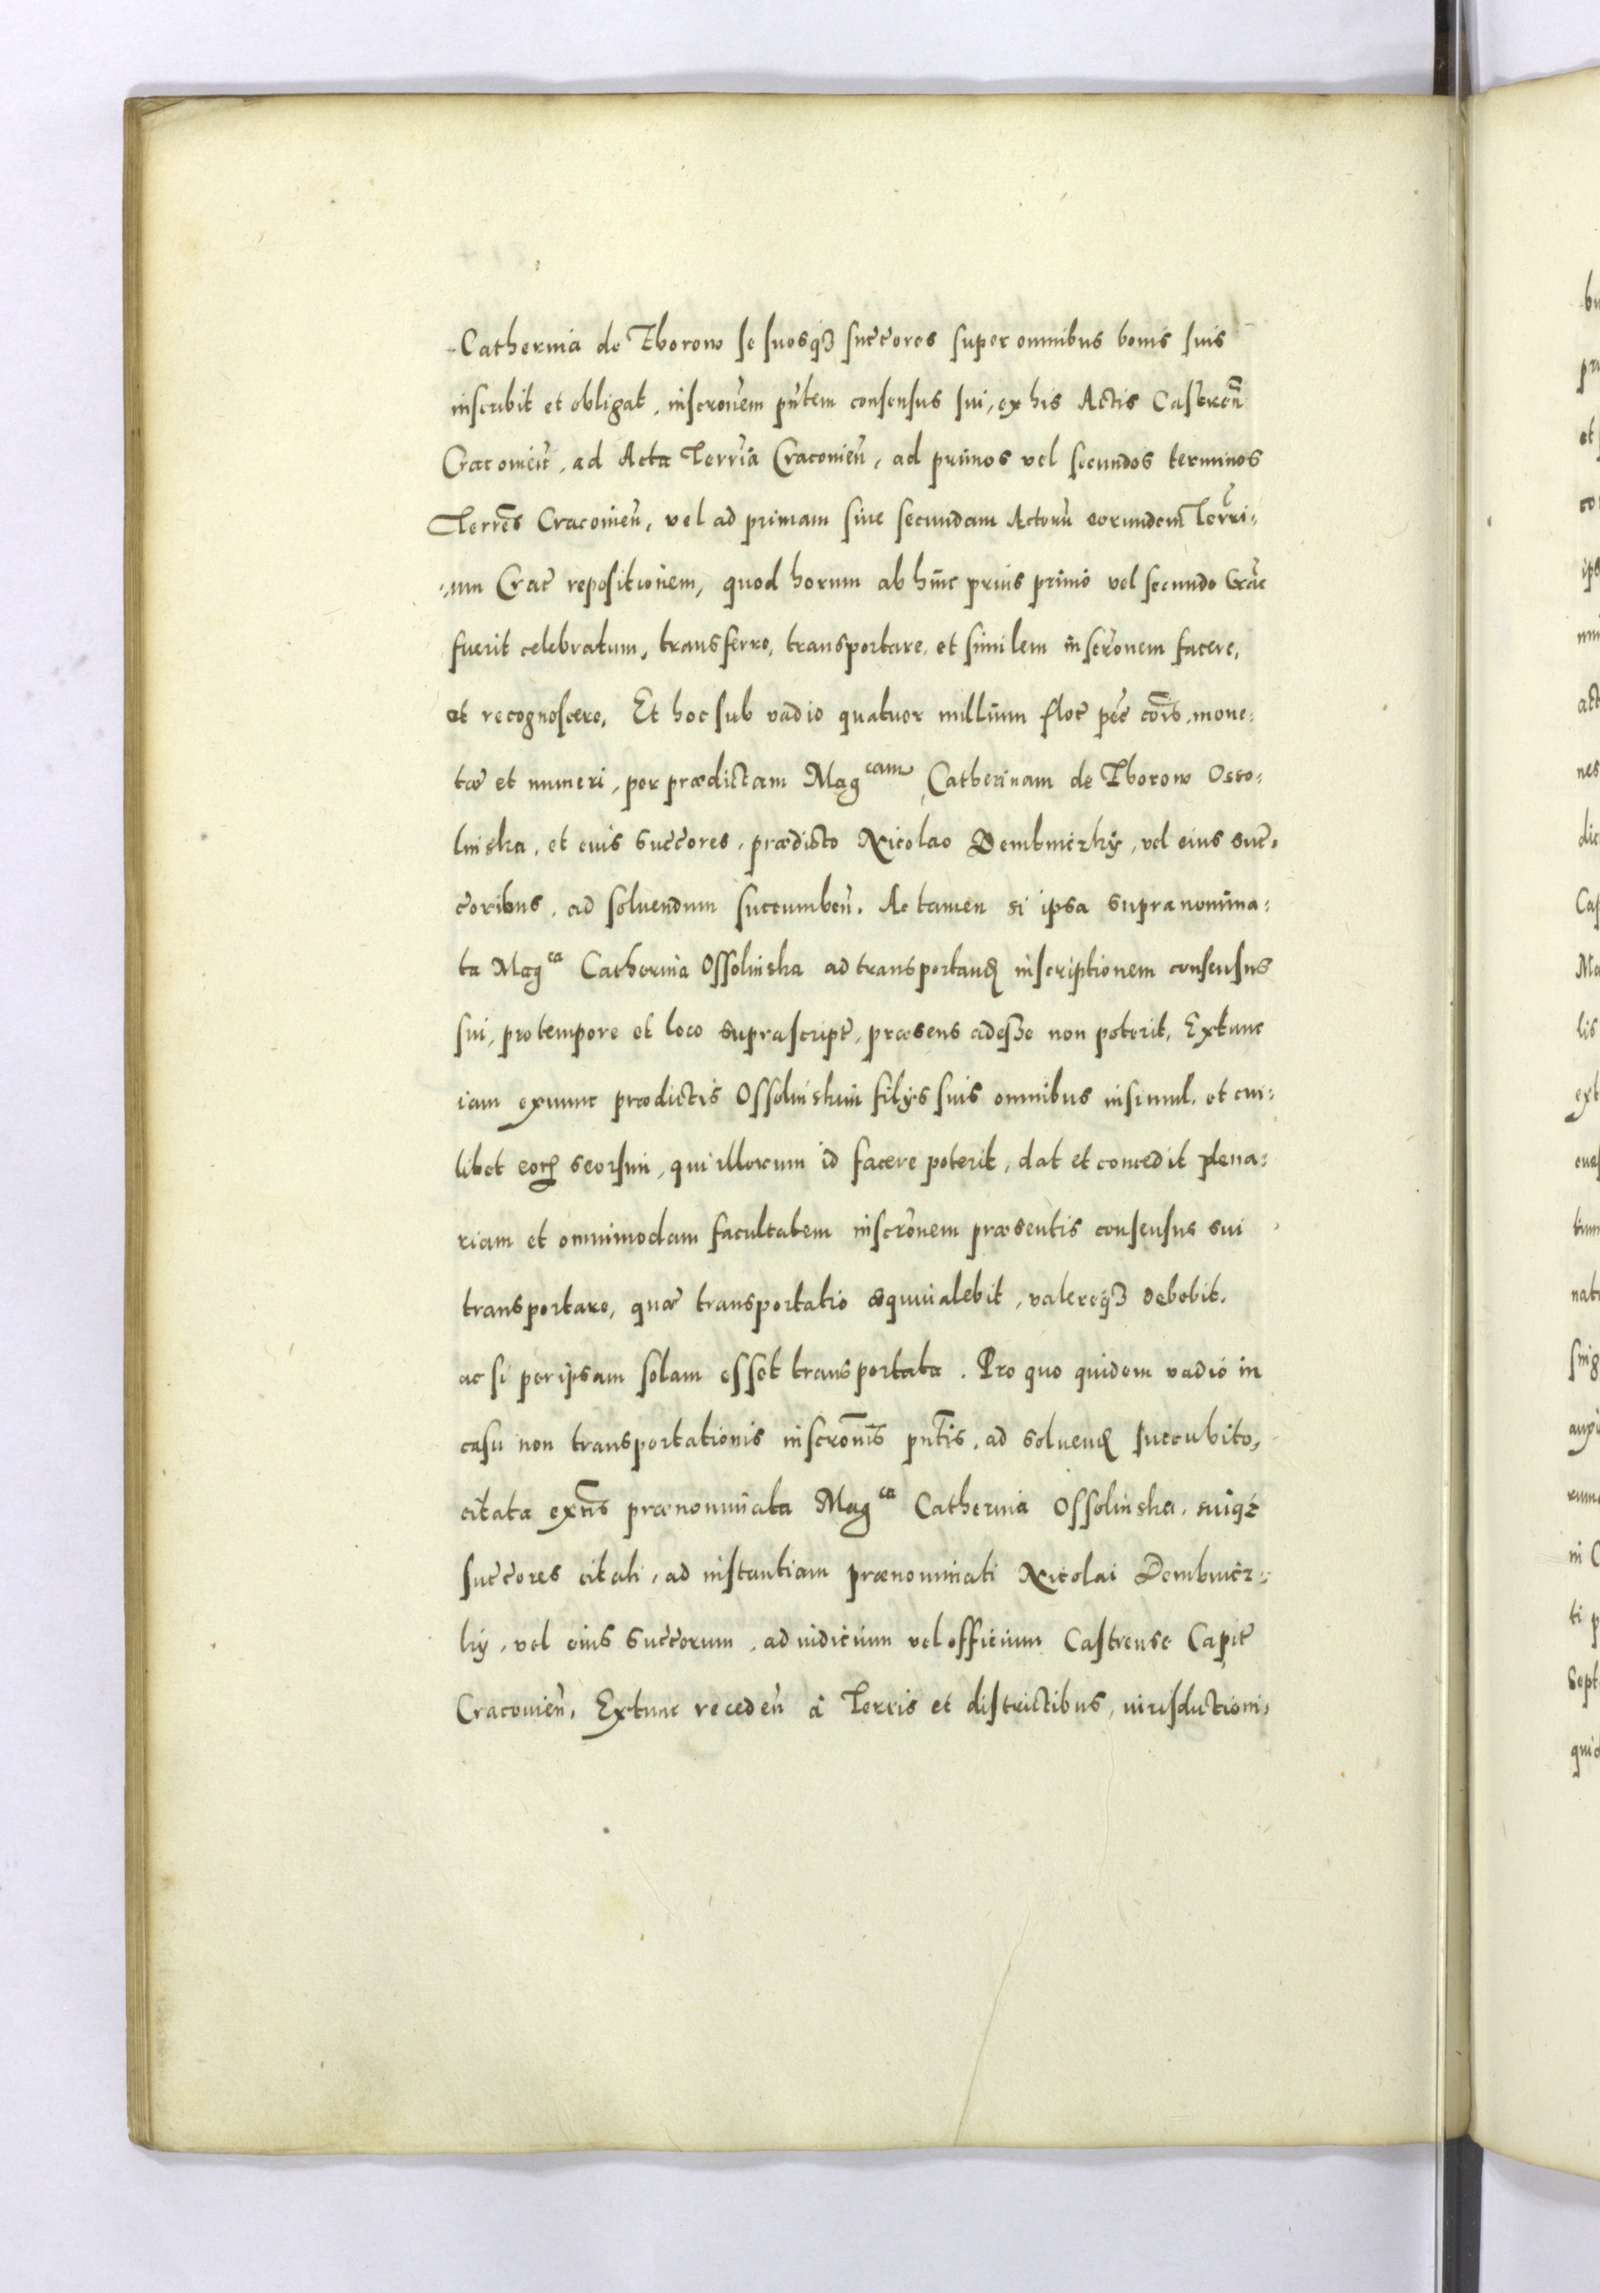 Catherina de Thorow se suosq3 succ̃ores super omnibus bonis suis
inscribit et obligat, inscrõnem pñtem consensus sui, ex his Actis Castreñ
Cracovieñ, ad Acta Terrĩa Cracovieñ, ad primos vel secundos terminos
Terrẽs Cracovieñ, vel ad primam sive secundam Actorũ eorundem Terrĩ:
um Crac̃ repositionem, quod horum ab hinc prius primo vel secundo Crac̃
fuerit celebratum, transferre, transportare, et similem inscrõnem facere,
et recognoscere. Et hoc sub vadio quatuor millium floc̃ pec̃ cõis, mone:
tæ et numeri, per prædictam Magcam Catherinam de Thorow Osso:
linska, et eius succ̃ores, prædicto Nicolao Dembinczky, vel eius succ̃:
c̃oribus, ad solvendum succumbeñ. Ac tamen si ipsa supranomina:
ta Magca Catherina Ossolinska ad transportand inscriptionem consensus
sui, pro tempore et loco suprascript̃, præsens adesse non poterit, Extunc
iam exnunc prædictis Ossolinskim filys suis omnibus insimul, et cui:
libet eorũ seorsim, qui illorum id facere poterit, dat et concedit plena:
riam et omnimodam facultatem inscrõnem præsentis consensus sui
transportare, quæ transportatio æquivalebit, valereq3 debebit.
ac si per ipsam solam esset transportata. Pro quo quidem vadio in
casu non transportationis inscrõnis pñtis, ad solvend succubito,
citata exñs prænominata Magca Catherina Ossolinska, suiq3
succ̃ores citati, ad instantiam prænominati Nicolai Dembincz:
ky, vel eius succ̃orum, ad iudicium vel officium Castrense Capit̃
Cracovieñ, Extunc recedeñ à Terris et districtibus, iurisdictioni: